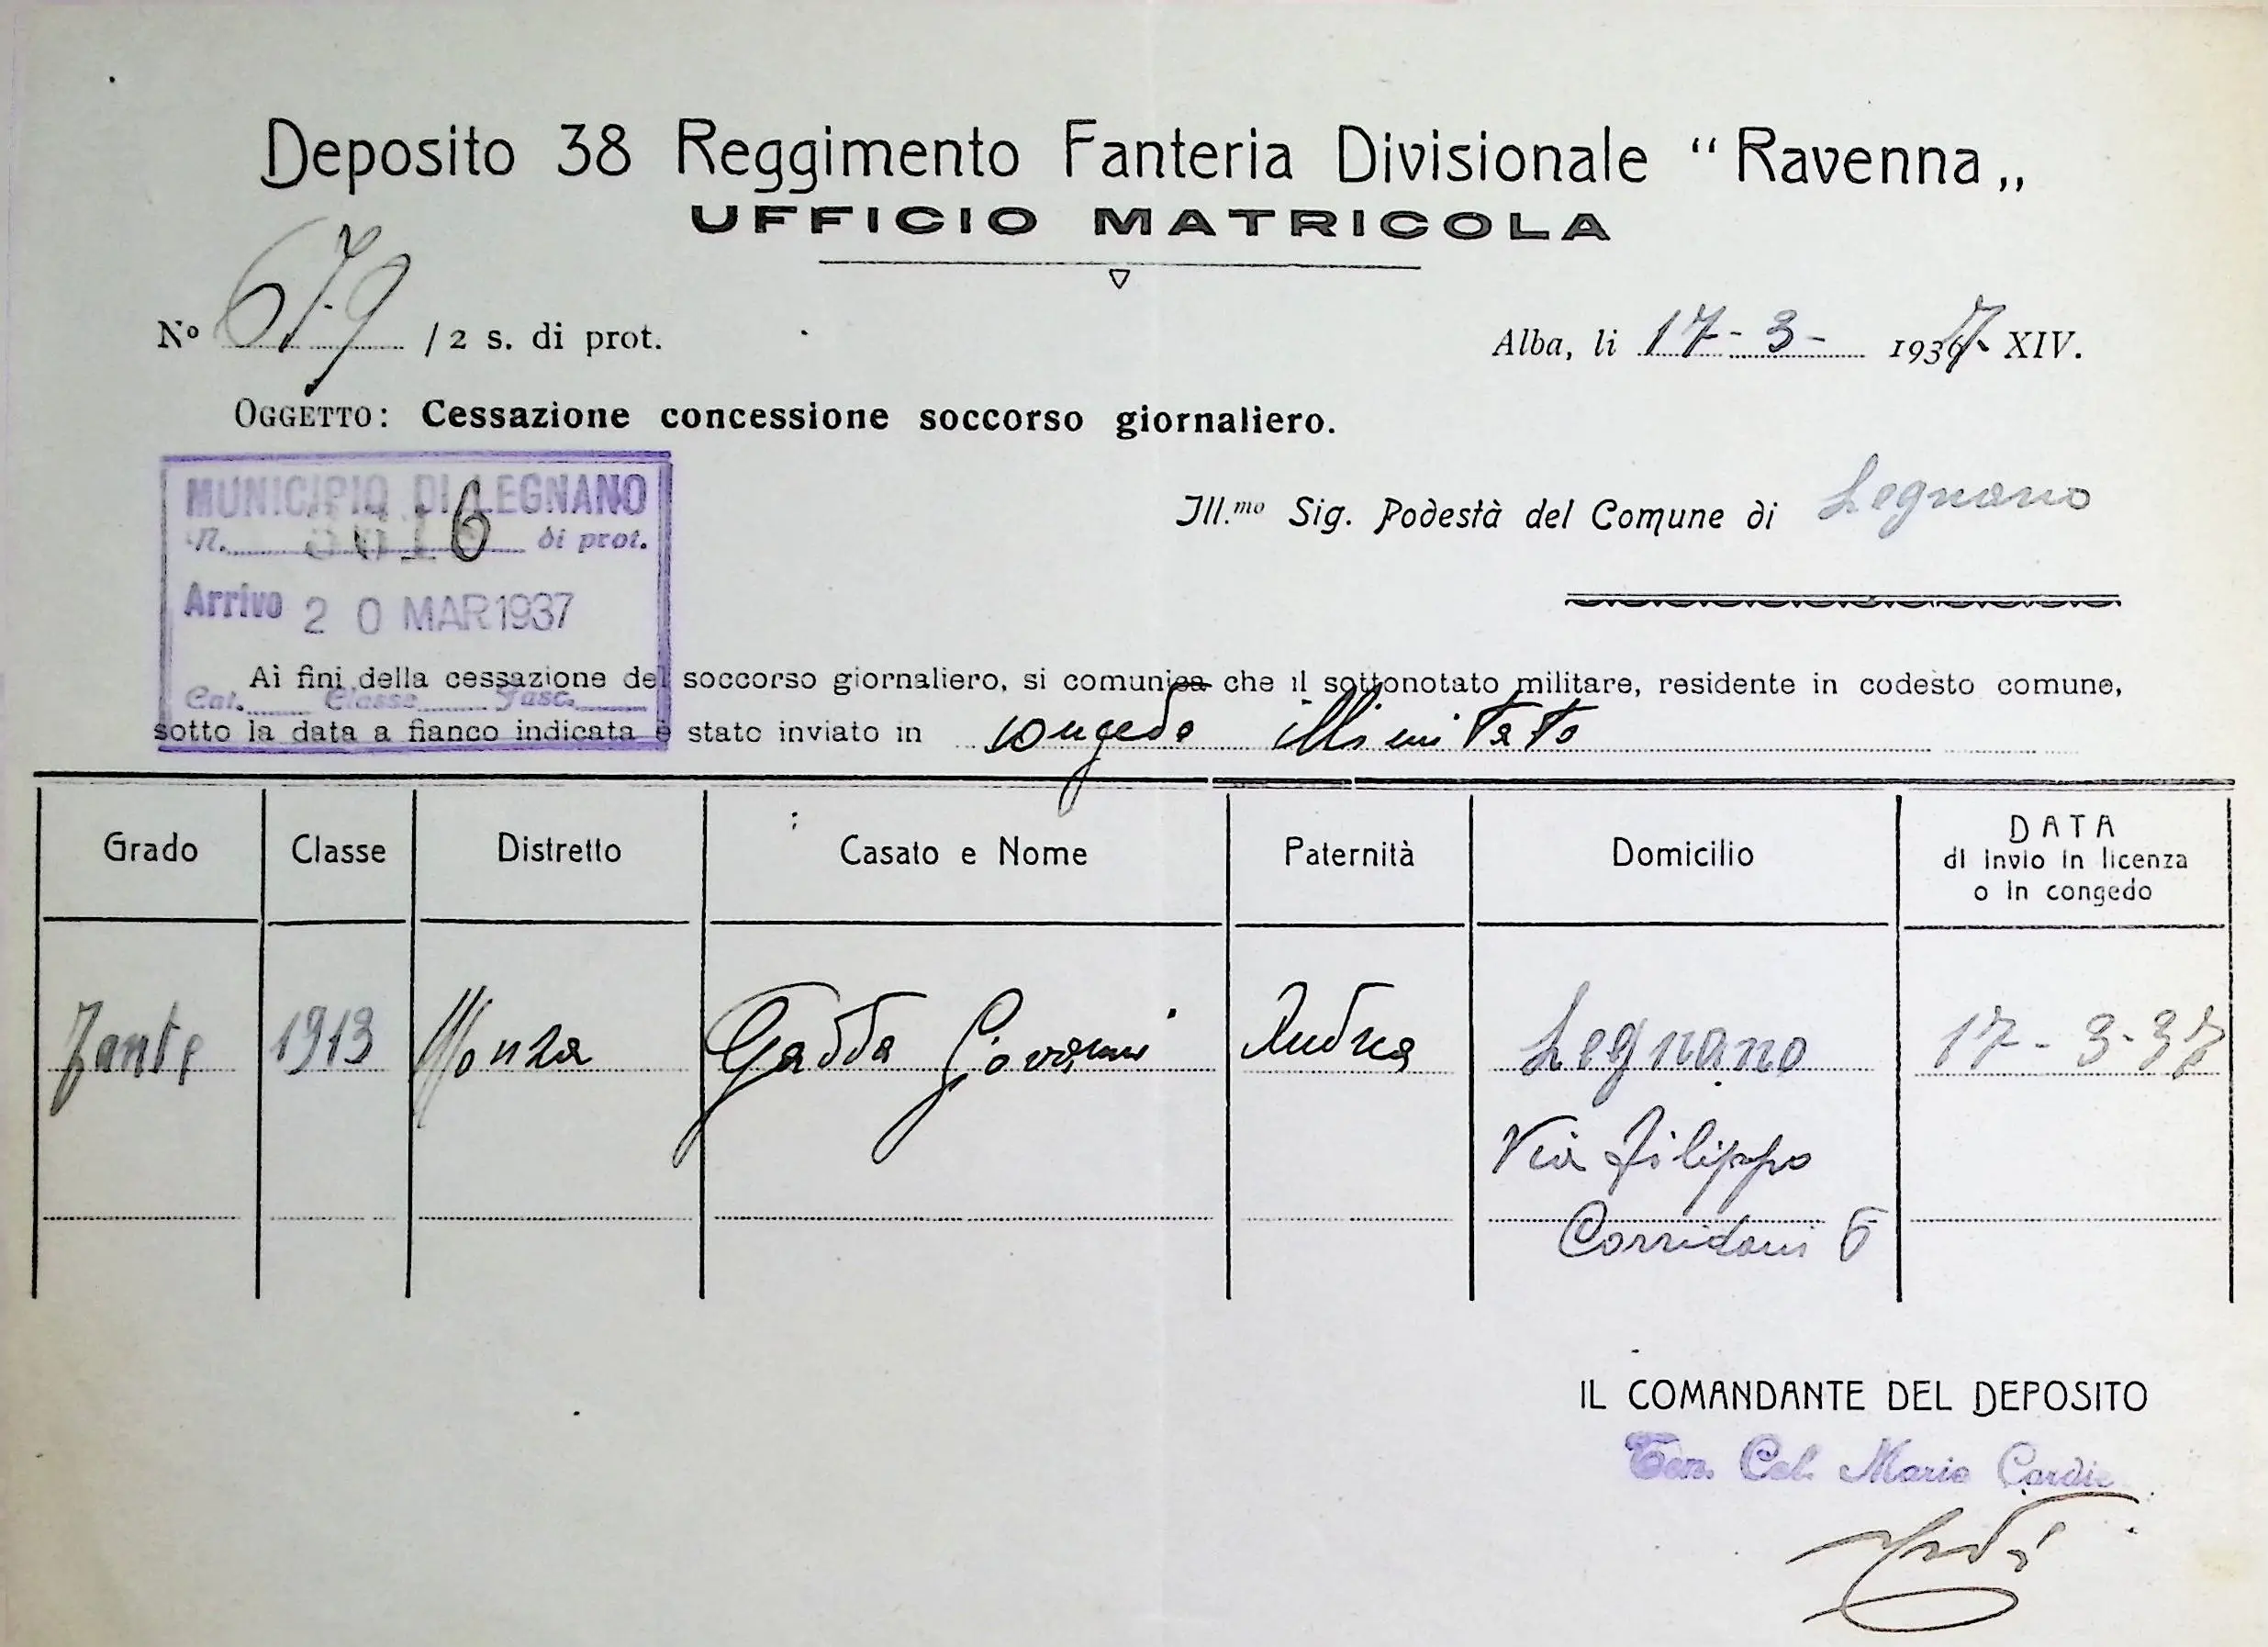 Deposito 38 Reggimento Fanteria Divisionale “Ravenna„
UFFICIO MATRICOLA
Nº 679 / 2 s. di prot.
Alba, li 17-3- 1937 XIV.
OGGETTO: Cessazione concessione soccorso giornaliero.
MUNICIPIO DI LEGNANO
N. 6 di prot.
Arrivo 20 MAR 1937
Cat. Classe Fasc.
Ill.mo Sig. Podestà del Comune di Legnano
Ai fini della cessazione del soccorso giornaliero, si comunica che il sottonotato militare, residente in codesto comune,
sotto la data a fianco indicata è stato inviato in congedo illimitato
Grado Classe Distretto Casato e Nome Paternità Domicilio DATA
di invio in licenza
o in congedo
Fante 1913 Monza Gadda Giovanni Andrea Legnano 17-3-37
Via Filippo
Corridoni 6
IL COMANDANTE DEL DEPOSITO
Ten. Col. Mario Cardie